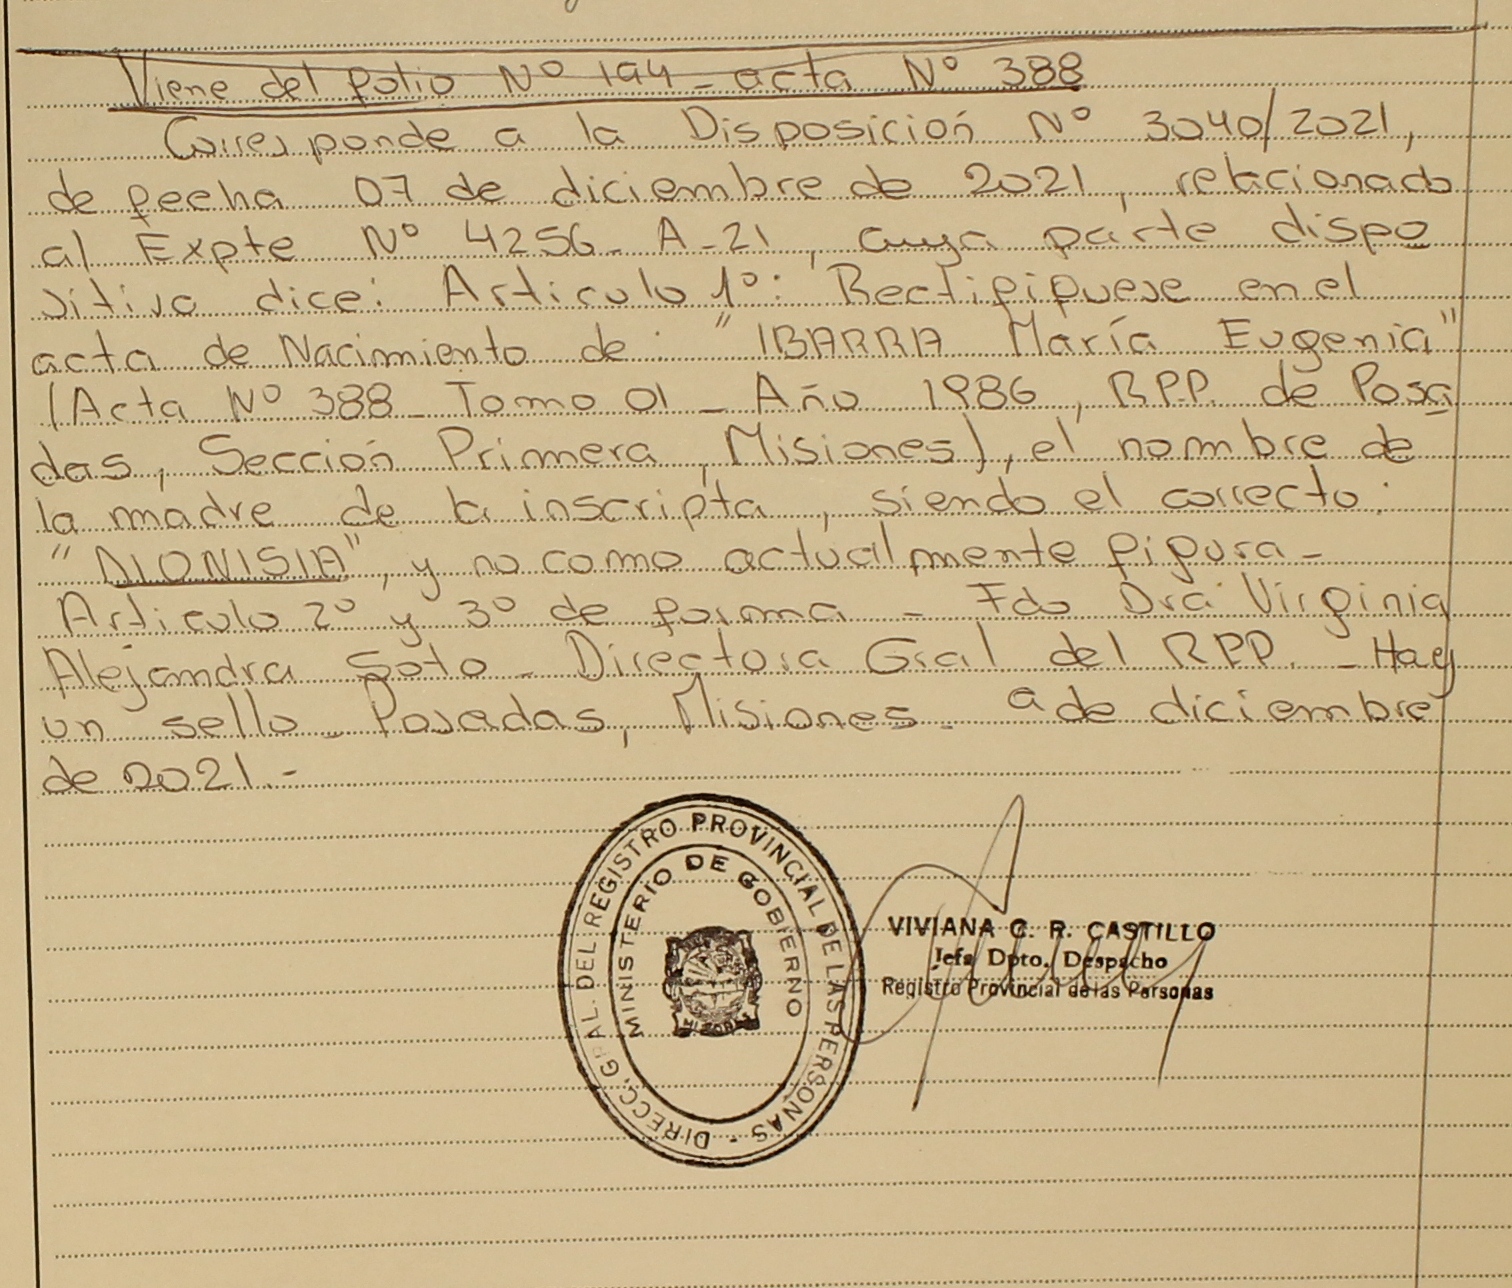 Viene del folio Nº 194 - acta Nº 388
Corresponde a la Disposición Nº 3040/2021,
de fecha 07 de diciembre de 2021, relacionado
al Expte Nº 4256- A-21, cuya parte dispo
sitiva dice: Articulo 1º: Rectifiquese en el
acta de Nacimiento de: "IBARRA María Eugenia"
(Acta Nº 388 - Tomo 01 - Año 1986, R.P.P. de Posa
das, Sección Primera, Misiones), el nombre de
la madre de la inscripta, siendo el correcto:
"DIONISIA", y no como actualmente figura -
Articulo 2º y 3º de forma - Fdo Dra Virginia
Alejandra Soto - Directora Gral del RPP. - Hay
un sello - Posadas, Misiones - 9 de diciembre
de 2021.-
DIRECC. GRAL. DEL REGISTRO PROVINCIAL DE LAS PERSONAS -
MINISTERIO DE GOBIERNO
MISIONES
VIVIANA C. R. CASTILLO
Jefa Dpto. Despacho
Registro Provincial de las Personas